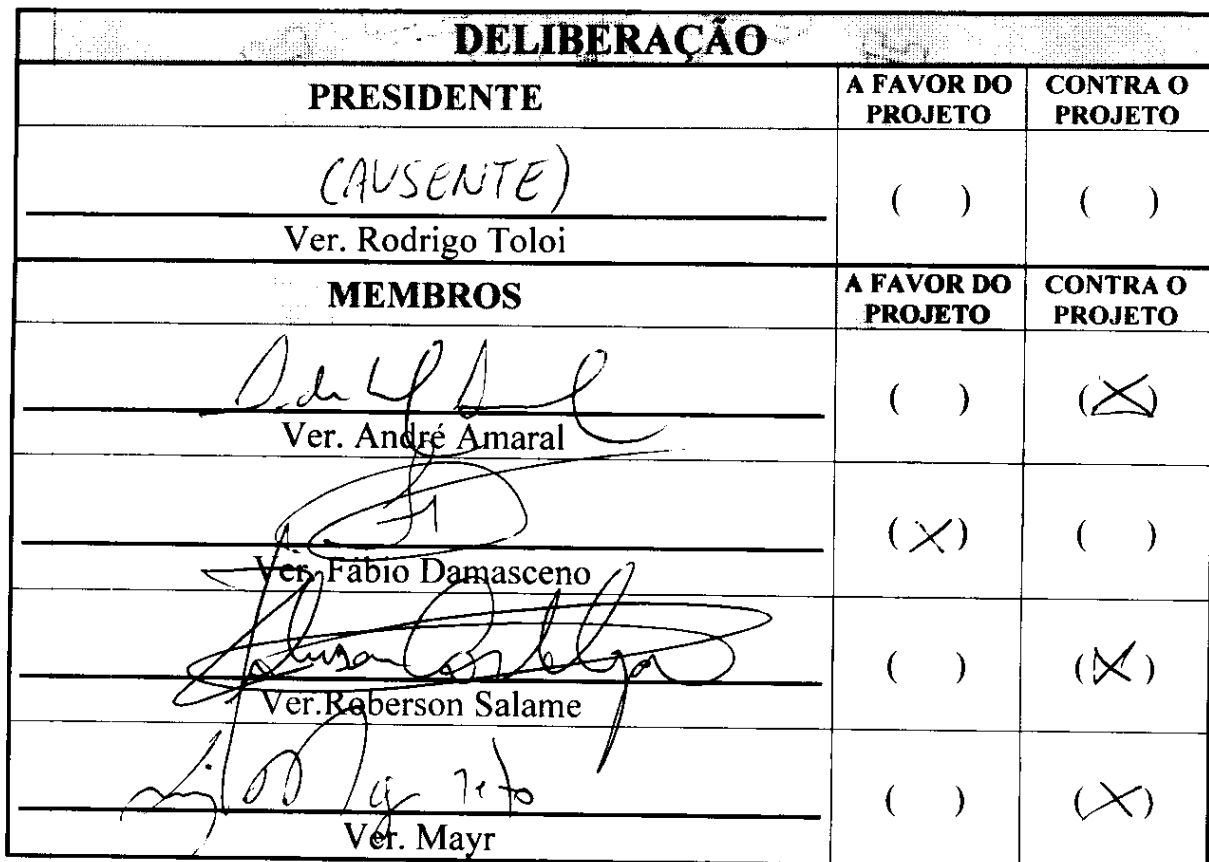 DELIBERAÇÃO
PRESIDENTE A FAVOR DO PROJETO CONTRA O PROJETO
(AUSENTE)
Ver. Rodrigo Toloi ( ) ( )
MEMBROS A FAVOR DO PROJETO CONTRA O PROJETO
Ver. André Amaral ( ) (X)
Ver. Fábio Damasceno (X) ( )
Ver.Roberson Salame ( ) (X)
Ver. Mayr ( ) (X)